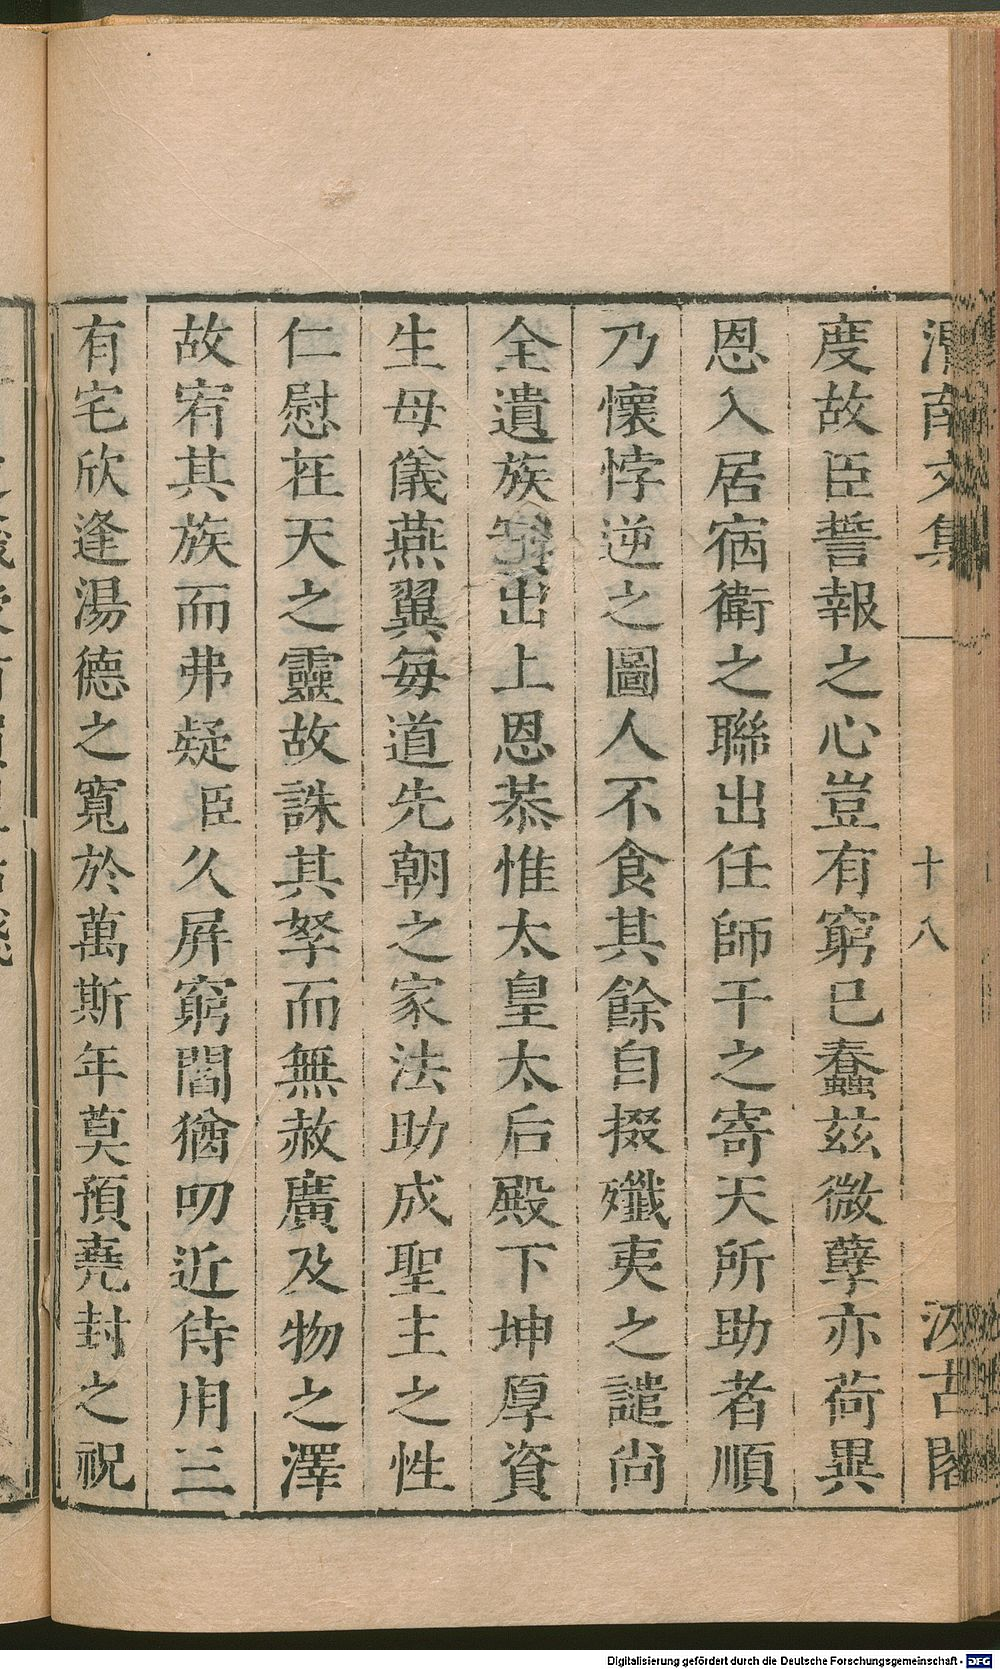 渭南文集
十八
汲古閣
度故臣誓報之心豈有窮已蠢茲微孽亦荷異
恩入居宿衛之聯出任師干之寄天所助者順
乃懷悖逆之圖人不食其餘自掇殲夷之譴尚
全遺族寔出上恩恭惟太皇太后殿下坤厚資
生母儀燕翼每道先朝之家法助成聖主之性
仁慰在天之靈故誅其孥而無赦廣及物之澤
故宥其族而弗疑臣久屏窮閻猶叨近侍用三
有宅欣逢湯德之寬於萬斯年莫預堯封之祝
Digitalisierung gefördert durch die Deutsche Forschungsgemeinschaft - DFG